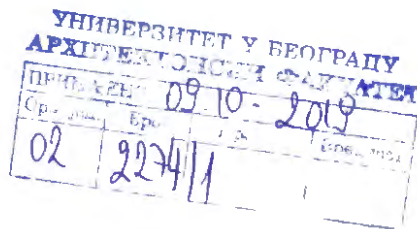 УНИВЕРЗИТЕТ У БЕОГРАДУ
АРХИТЕКТОНСКИ ФАКУЛТЕТ
ПРИМЉЕНО 09.10-2019
02 2274/1